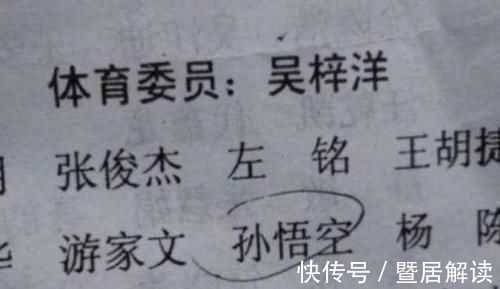 体育委员：吴梓洋
张俊杰 左 铭 王胡捷
游家文 孙悟空 杨 陈
快传号 / 暨居解读